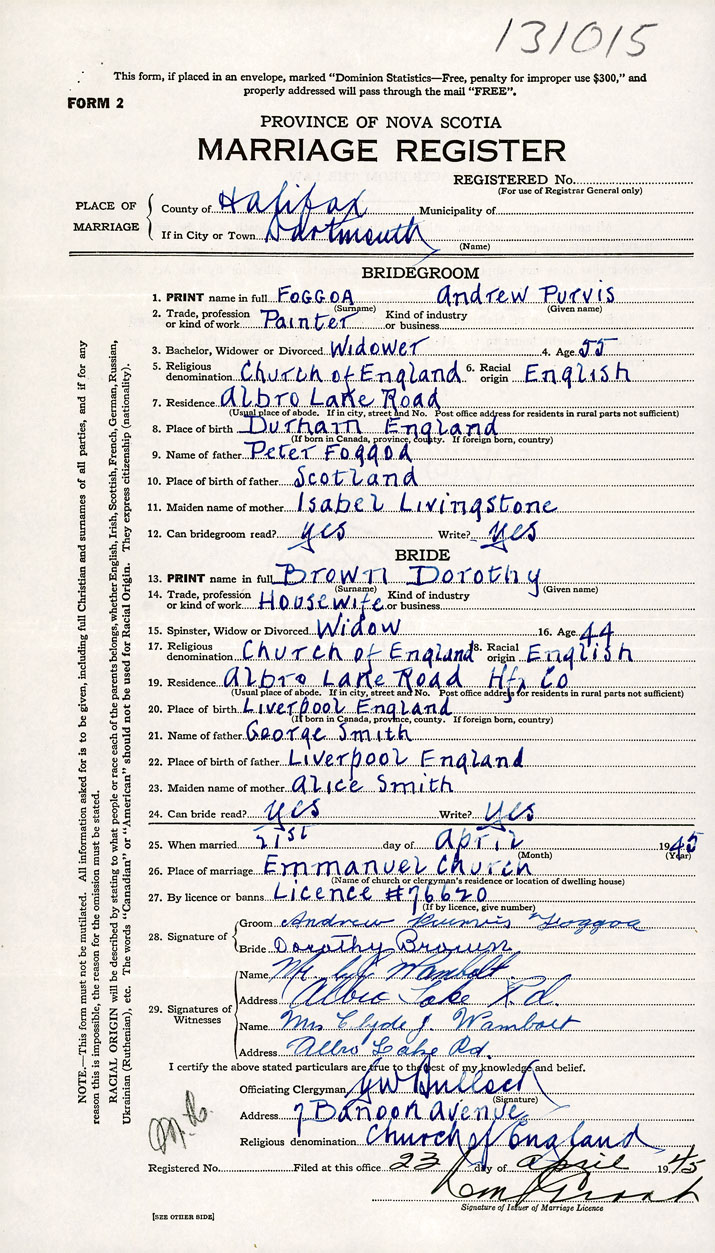 131015
This form, if placed in an envelope, marked "Dominion Statistics—Free, penalty for improper use $300," and
properly addressed will pass through the mail "FREE".
FORM 2
PROVINCE OF NOVA SCOTIA
MARRIAGE REGISTER
REGISTERED No.
(For use of Registrar General only)
PLACE OF MARRIAGE
County of Halifax Municipality of
If in City or Town Dartmouth
(Name)
BRIDEGROOM
1. PRINT name in full FOGGOA Andrew Purvis
(Surname) (Given name)
2. Trade, profession or kind of work Painter Kind of industry or business
3. Bachelor, Widower or Divorced Widower 4. Age 55
5. Religious denomination Church of England 6. Racial origin English
7. Residence Albro Lake Road
(Usual place of abode. If in city, street and No. Post office address for residents in rural parts not sufficient)
8. Place of birth Durham England
(If born in Canada, province, county. If foreign born, country)
9. Name of father Peter Foggoa
10. Place of birth of father Scotland
11. Maiden name of mother Isabel Livingstone
12. Can bridegroom read? yes Write? yes
BRIDE
13. PRINT name in full Brown Dorothy
(Surname) (Given name)
14. Trade, profession or kind of work Housewife Kind of industry or business
15. Spinster, Widow or Divorced Widow 16. Age 44
17. Religious denomination Church of England 18. Racial origin English
19. Residence Albro Lake Road Hfx Co
(Usual place of abode. If in city, street and No. Post office address for residents in rural parts not sufficient)
20. Place of birth Liverpool England
(If born in Canada, province, county. If foreign born, country)
21. Name of father George Smith
22. Place of birth of father Liverpool England
23. Maiden name of mother Alice Smith
24. Can bride read? yes Write? yes
25. When married 21st day of April 1945
(Month) (Year)
26. Place of marriage Emmanuel Church
(Name of church or clergyman's residence or location of dwelling house)
27. By licence or banns Licence #76620
(If by licence, give number)
28. Signature of
Groom Andrew Purvis Foggoa
Bride Dorothy Brown
29. Signatures of Witnesses
Name Mr. Wambolt
Address Albro Lake Rd.
Name Mrs Clyde J Wambolt
Address Albro Lake Rd.
I certify the above stated particulars are true to the best of my knowledge and belief.
Officiating Clergyman GW Bullock
(Signature)
Address 7 Banoon Avenue
Religious denomination Church of England
Registered No. Filed at this office 23 day of April 1945
Signature of Issuer of Marriage Licence
[SEE OTHER SIDE]
NOTE.—This form must not be mutilated. All information asked for is to be given, including full Christian and surnames of all parties, and if for any
reason this is impossible, the reason for the omission must be stated.
RACIAL ORIGIN will be described by stating to what people or race each of the parents belongs, whether English, Irish, Scottish, French, German, Russian,
Ukrainian (Ruthenian), etc. The words "Canadian" or "American" should not be used for Racial Origin. They express citizenship (nationality).